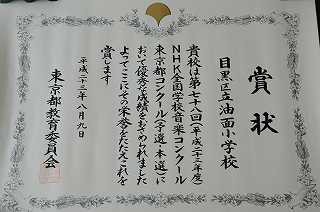 賞状
目黒区立油面小学校
貴校は第七十八回(平成二十三年度)
NHK全国学校音楽コンクール
東京都コンクール(予選・本選)に
おいて優秀な成績をおさめられました
よってここにその栄誉をたたえこれを
賞します
平成二十三年八月九日
東京都教育委員会